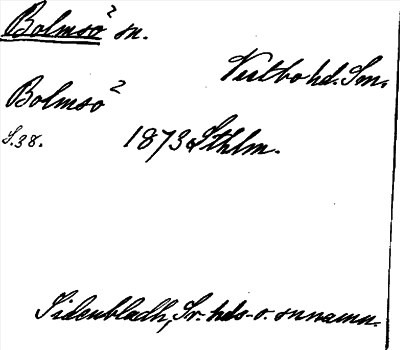 Bolmsö² sn.
Vestbo hd. Sm.
Bolmsö²
S.38. 1873 Sthlm.
Sidenbladh, Sv. hds- o. snnamn.